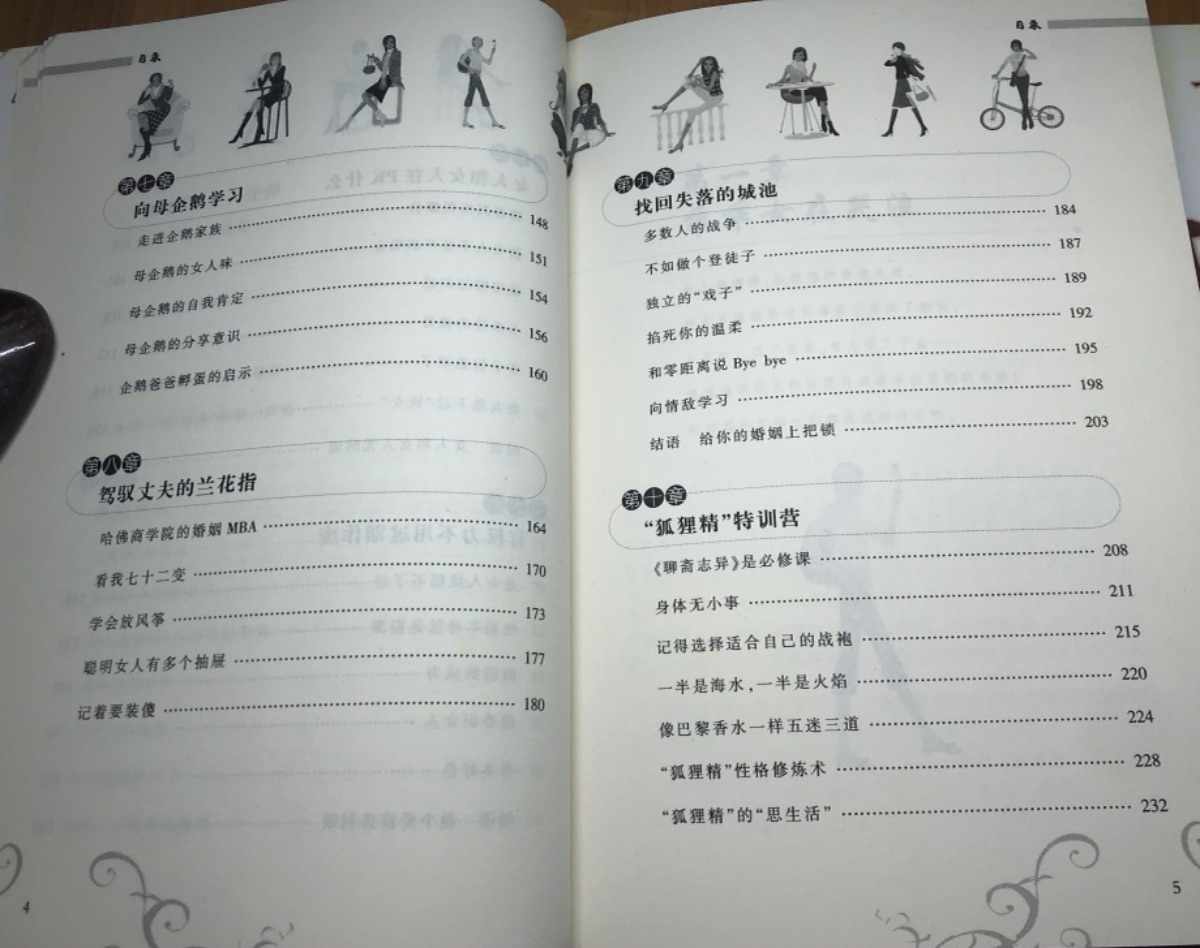 目录
第七章
向母企鹅学习
走进企鹅家族 148
母企鹅的女人味 151
母企鹅的自我肯定 154
母企鹅的分享意识 156
企鹅爸爸孵蛋的启示 160
第八章
驾驭丈夫的兰花指
哈佛商学院的婚姻 MBA 164
看我七十二变 170
学会放风筝 173
聪明女人有多个抽屉 177
记着要装傻 180
4
目录
第九章
找回失落的城池
多数人的战争 184
不如做个登徒子 187
独立的“戏子” 189
掐死你的温柔 192
和零距离说 Bye bye 195
向情敌学习 198
结语 给你的婚姻上把锁 203
第十章
“狐狸精”特训营
《聊斋志异》是必修课 208
身体无小事 211
记得选择适合自己的战袍 215
一半是海水，一半是火焰 220
像巴黎香水一样五迷三道 224
“狐狸精”性格修炼术 228
“狐狸精”的“思生活” 232
5